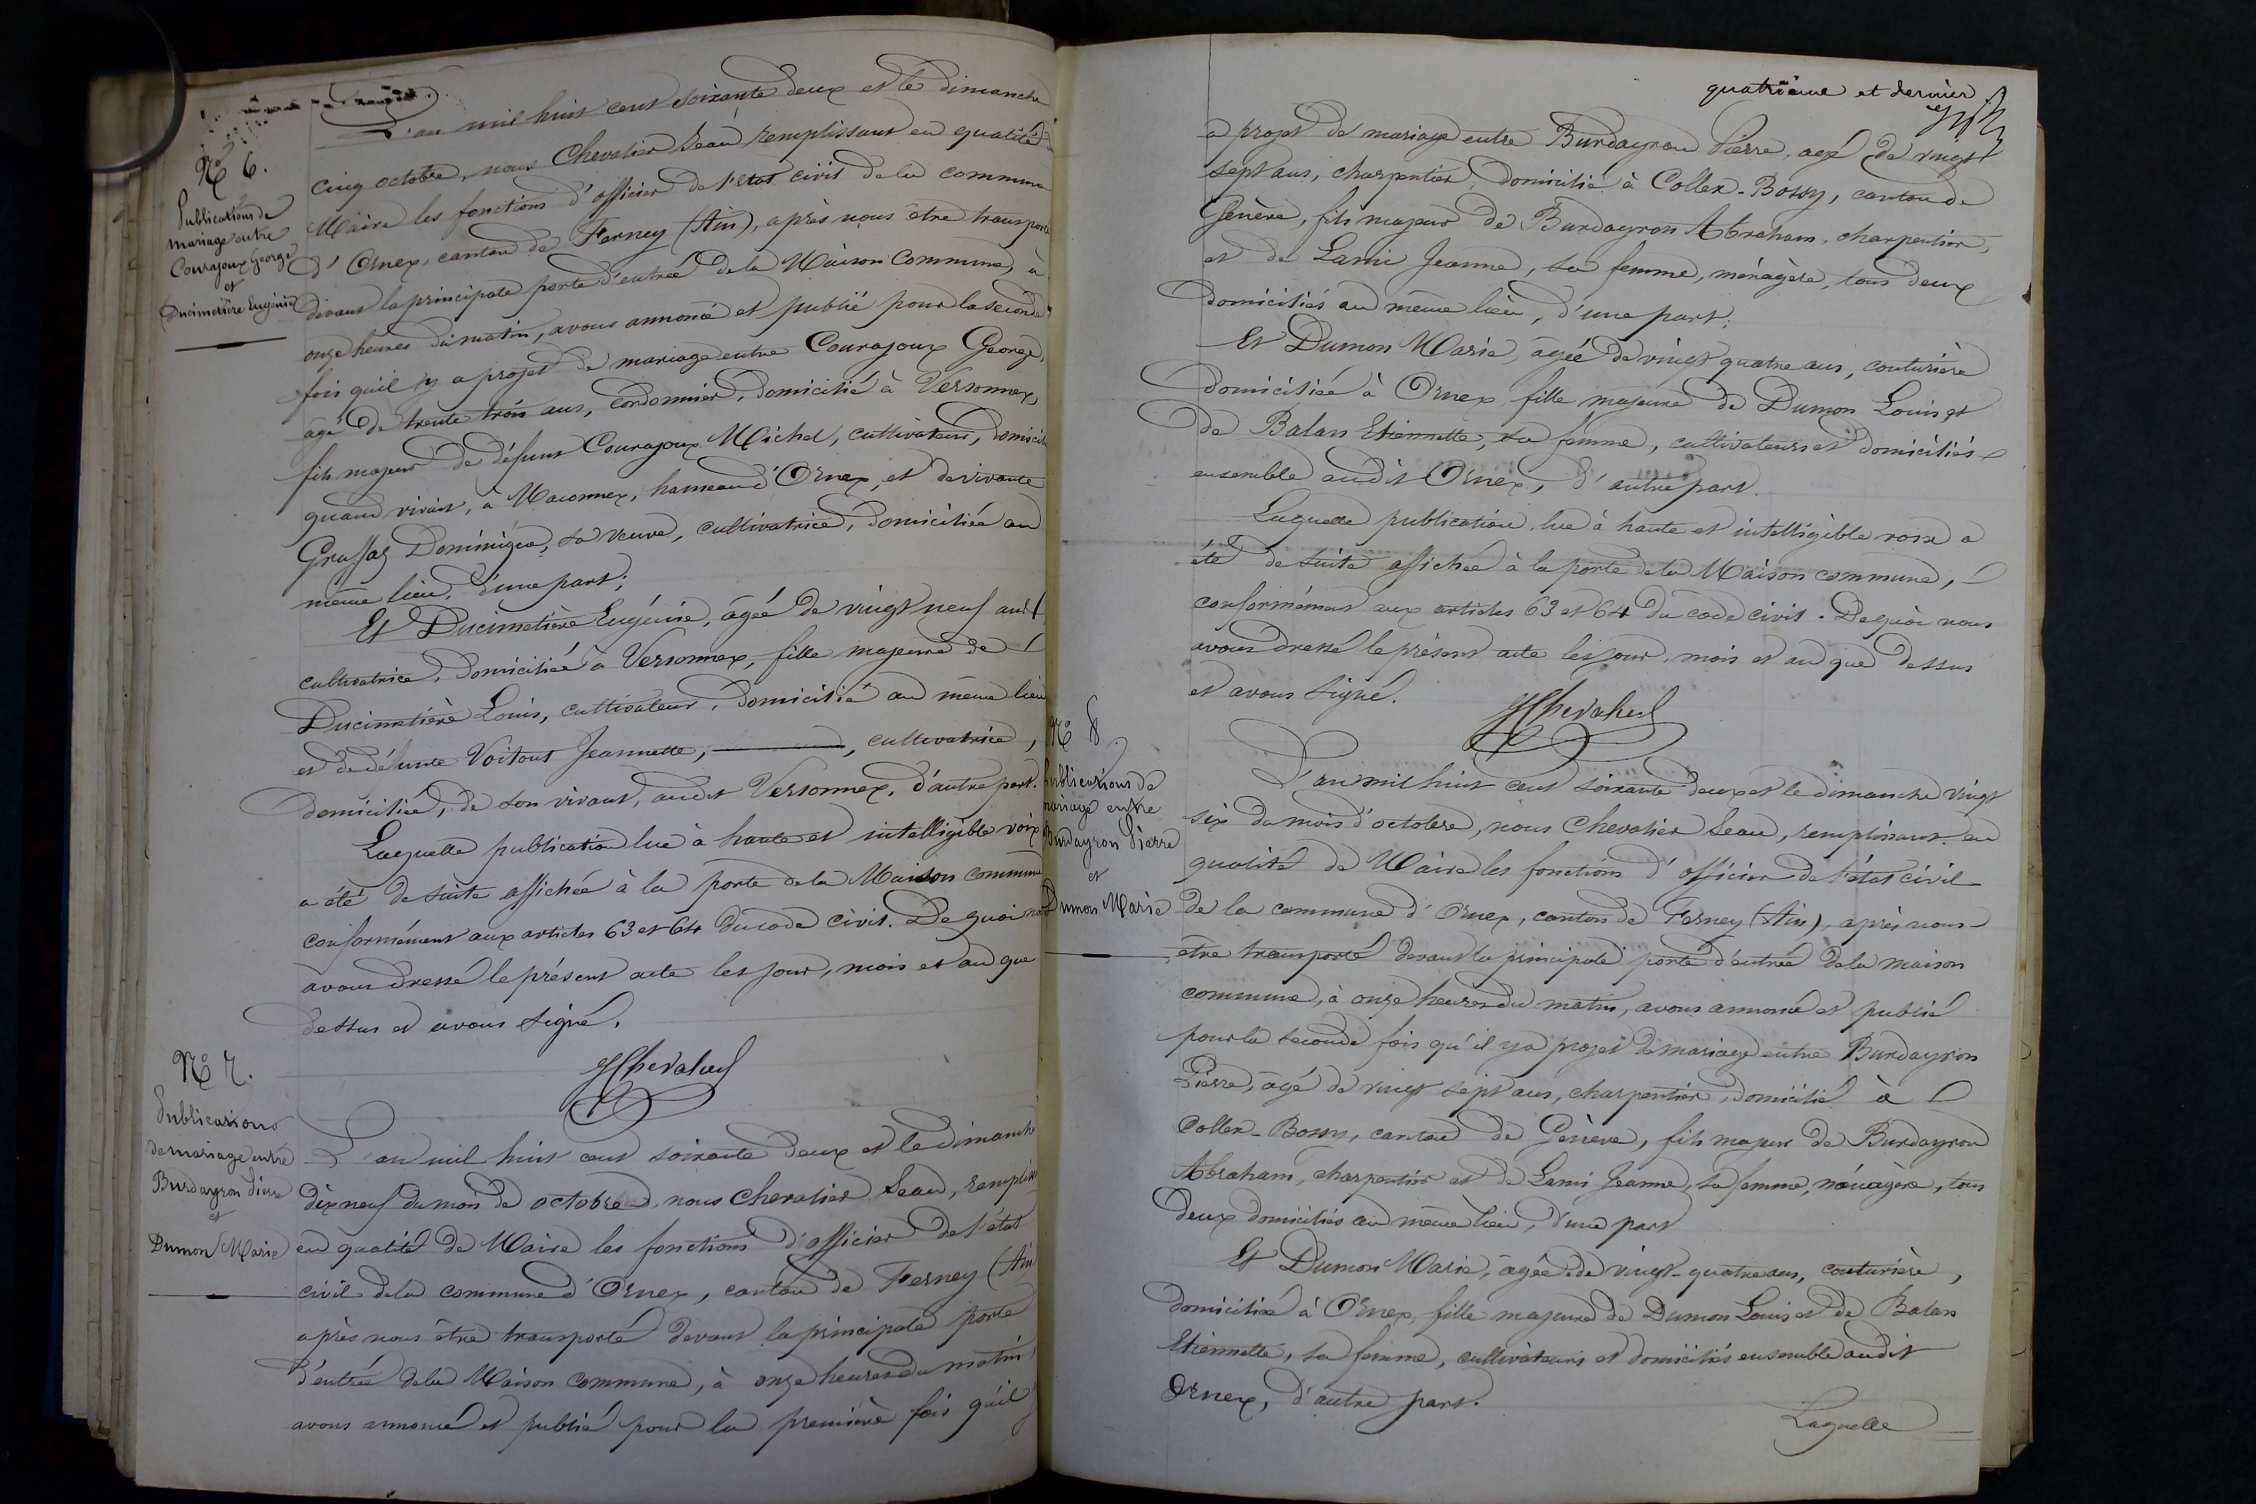 N° 6.
Publications de
mariage entre
Courajoux George
et
Ducimetière Eugénie
L'an mil huit cent soixante deux et le dimanche
cinq octobre, nous Chevalier Jean remplissant en qualité de
Maire les fonctions d'officier de l'état civil de la commune
d'Ornex, canton de Ferney (Ain), après nous être transporté
devant la principale porte d'entrée de la Maison Commune, à
onze heures du matin, avons annoncé et publié pour la seconde
fois qu'il y a projet de mariage entre Courajoux George,
âgé de trente trois ans, cordonnier, domicilié à Versonnex,
fils majeur de défunt Courajoux Michel, cultivateur, domicilié
quand vivait, à Maconnex, hameau d'Ornex, et de vivante
Grassaz Dominiqua, sa veuve, cultivatrice, domiciliée au
même lieu, d'une part;
Et Ducimetière Eugénie, âgée de vingt neuf ans
cultivatrice, domiciliée à Versonnex, fille majeure de
Ducimetière Louis, cultivateur, domicilié au même lieu
et de défunte Voitout Jeannette, ———, cultivatrice,
domiciliée, de son vivant, audit Versonnex, d'autre part.
Laquelle publication lue à haute et intelligible voix
a été de suite affichée à la porte de la Maison commune
conformément aux articles 63 et 64 du code civil. De quoi nous
avons dressé le présent acte les jour, mois et an que
dessus et avons signé.
JChevalier
N° 7.
Publications
de mariage entre
Burdayron Pierre
et
Dumon Marie
L'an mil huit cent soixante deux et le dimanche
dix neuf du mois de octobre, nous Chevalier Jean, remplissant
en qualité de Maire les fonctions d'officier de l'état
civil de la commune d'Ornex, canton de Ferney (Ain
après nous être transporté devant la principale porte
d'entrée de la Maison commune, à onze heures du matin,
avons annoncé et publié pour la première fois qu'il y
quatrième et dernier
a projet de mariage entre Burdayron Pierre, agé de vingt
sept ans, charpentier, domicilié à Collex-Bossy, canton de
Genève, fils majeur de Burdayron Abraham, charpentier,
et de Lami Jeanne, sa femme, ménagère, tous deux
domiciliés au même lieu, d'une part;
Et Dumon Marie, âgée de vingt quatre ans, couturière
domiciliée à Ornex, fille majeure de Dumon Louis et
de Balan Etiennette, sa femme, cultivateurs et domiciliés
ensemble audit Ornex, d'autre part.
Laquelle publication, lue à haute et intelligible voix a
été de suite affichée à la porte de la Maison commune,
conformément aux articles 63 et 64 du code civil. De quoi nous
avons dressé le présent acte les jour, mois et an que dessus
et avons signé.
JChevalier
N° 8
Publications de
mariage entre
Burdayron Pierre
et
Dumon Marie
L'an mil huit cent soixante deux et le dimanche vingt
six du mois d'octobre, nous Chevalier Jean, remplissant en
qualité de Maire les fonctions d'officier de l'état civil
de la commune d'Ornex, canton de Ferney (Ain), après nous
être transporté devant la principale porte d'entrée de la maison
commune, à onze heures du matin, avons annoncé et publié
pour la seconde fois qu'il y a projet de mariage entre Burdayron
Pierre, âgé de vingt sept ans, charpentier, domicilié à
Collex-Bossy, canton de Genève, fils majeur de Burdayron
Abraham, charpentier et de Lami Jeanne, sa femme, ménagère, tous
deux domiciliés au même lieu, d'une part
Et Dumon Marie, âgée de vingt-quatre ans, couturière,
domiciliée à Ornex, fille majeure de Dumon Louis et de Balan
Etiennette, sa femme, cultivateurs et domiciliés ensemble audit
Ornex, d'autre part.
Laquelle